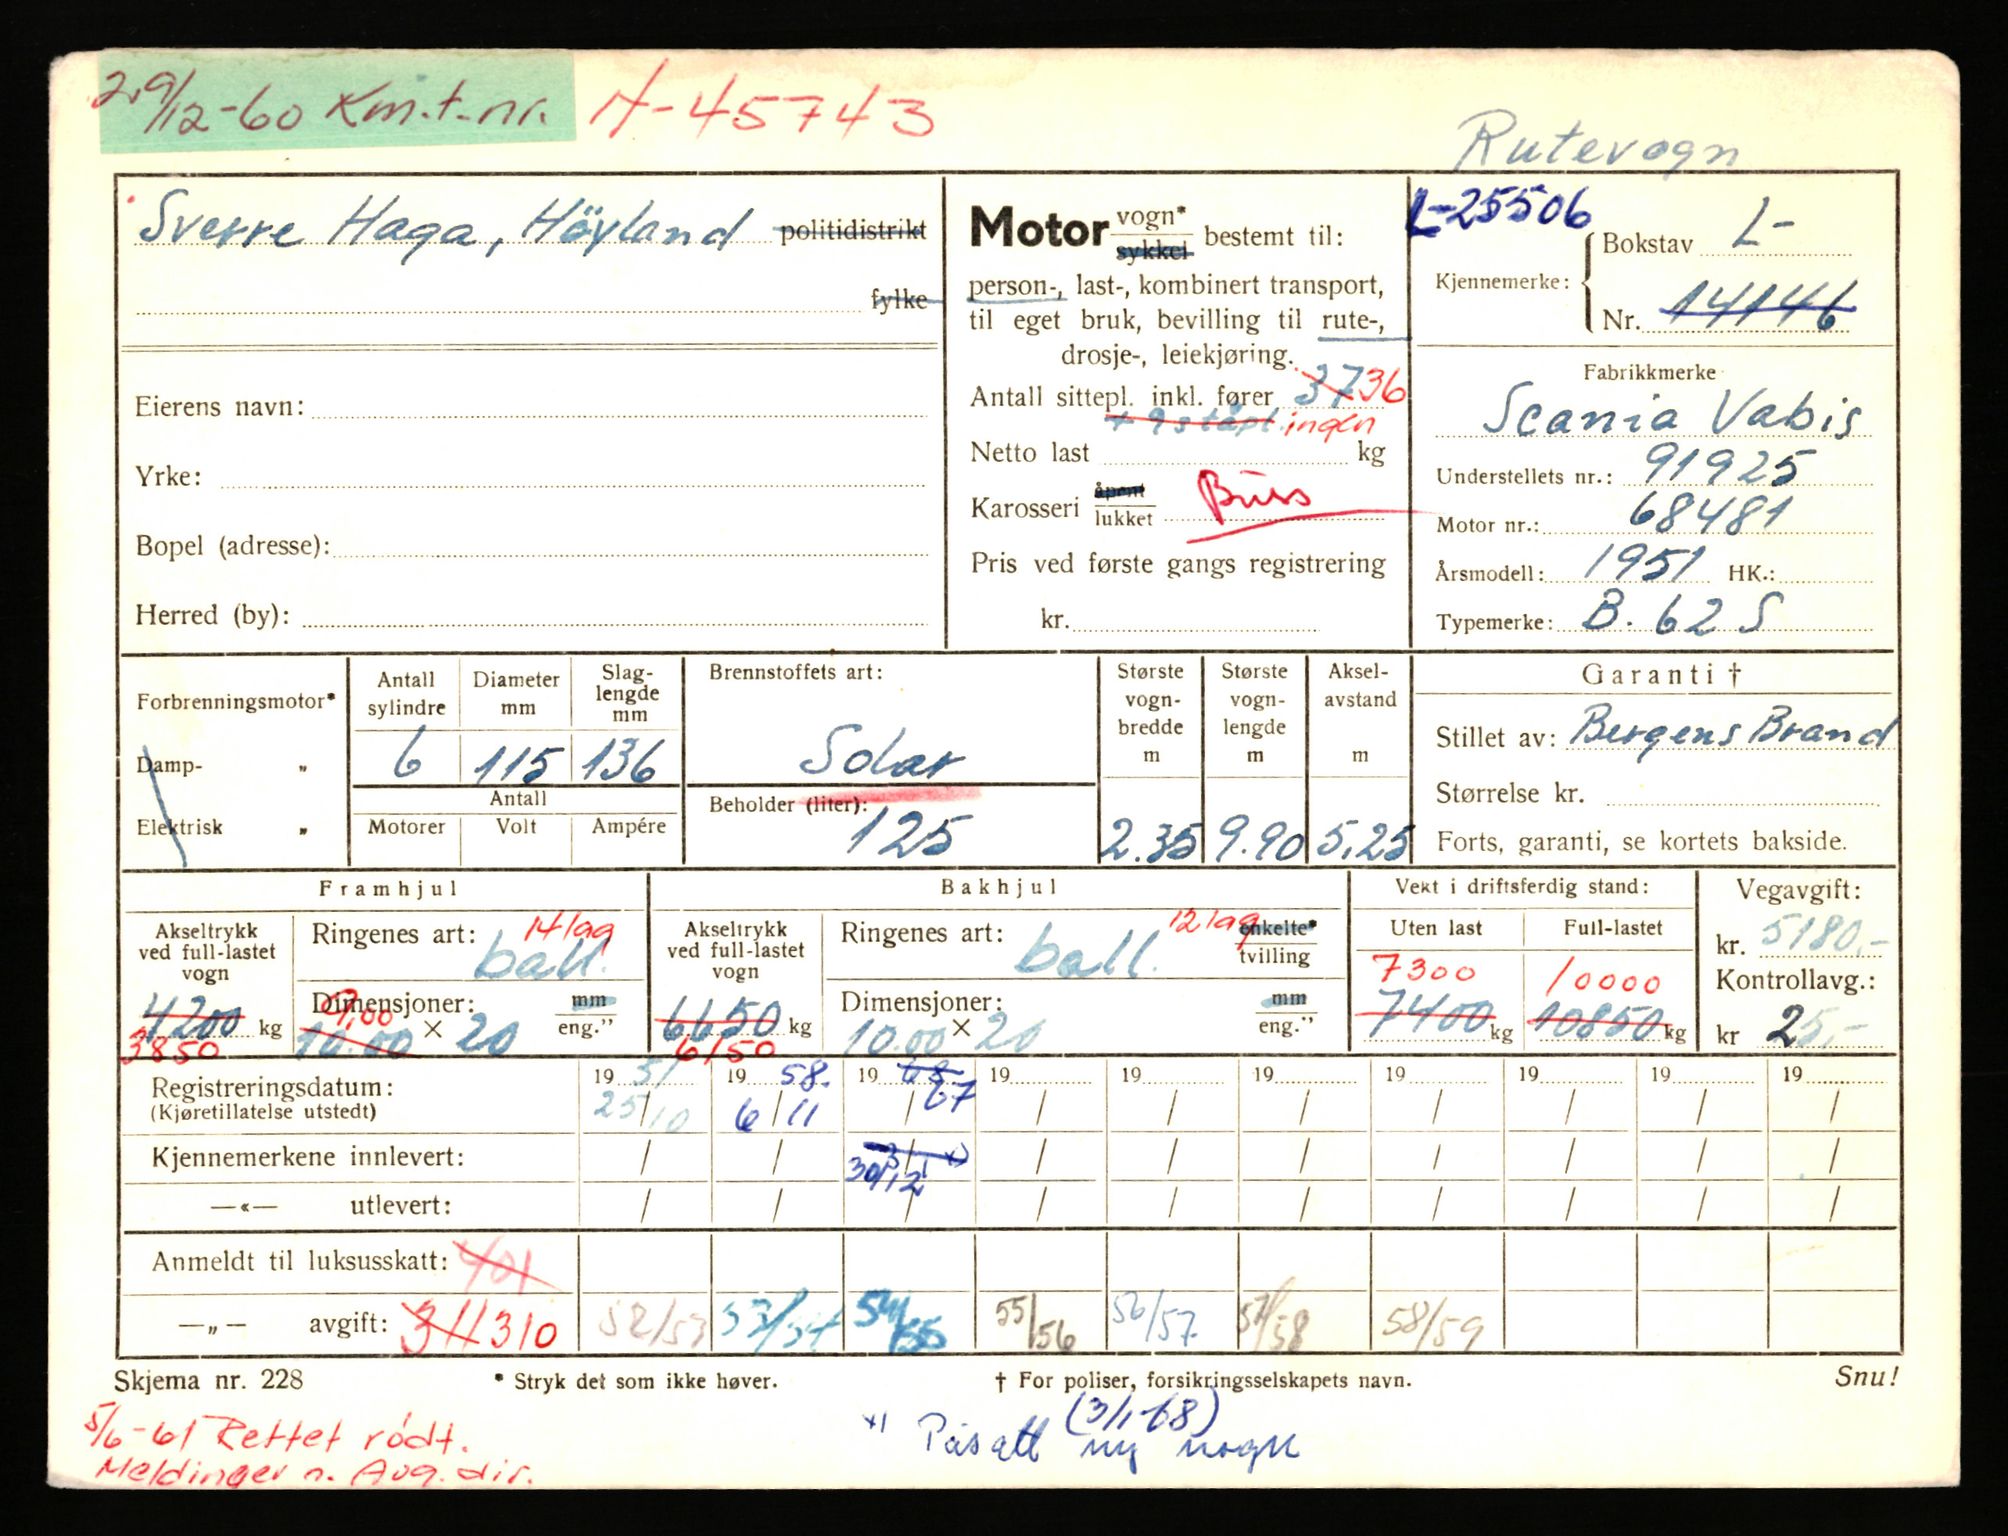 29/12-60 Km.t.nr. H-45743
Rutevogn
Sverre Haga, Höyland politidistrikt
fylke
Eierens navn:
Yrke:
Bopel (adresse):
Herred (by):
Motor vogn* sykkel bestemt til:
person-, last-, kombinert transport,
til eget bruk, bevilling til rute-,
drosje-, leiekjøring.
Antall sittepl. inkl. fører 37 36
+ 9 ståpl. ingen
Netto last kg
Karosseri åpent lukket Buss
Pris ved første gangs registrering
kr.
L-25506
Kjennemerke: Bokstav L-
Nr. 14146
Fabrikkmerke
Scania Vabis
Understellets nr.: 91925
Motor nr.: 68481
Årsmodell: 1951 HK.:
Typemerke: B. 62 S
Forbrenningsmotor*
Damp- „
Elektrisk „
Antall sylindre 6
Diameter mm 115
Slag-lengde mm 136
Antall
Motorer Volt Ampére
Brennstoffets art:
Solar
Beholder (liter):
125
Største vogn-bredde m 2.35
Største vogn-lengde m 9.90
Aksel-avstand m 5,25
Garanti †
Stillet av: Bergens Brand
Størrelse kr.
Forts, garanti, se kortets bakside.
Framhjul
Akseltrykk ved full-lastet vogn
4200 kg
3850
Ringenes art: 14 lag
ball.
Dimensjoner: mm
9.00
10.00 × 20 eng.”
Bakhjul
Akseltrykk ved full-lastet vogn
6650 kg
6150
Ringenes art: 12 lag enkelte*
ball. tvilling
Dimensjoner: mm
10.00 × 20 eng.”
Vekt i driftsferdig stand:
Uten last Full-lastet
7300 10000
7400 kg 10850 kg
Vegavgift:
kr. 5180,-
Kontrollavg.:
kr 25,-
Registreringsdatum: 19 51 19 58. 19 68 19 19 19 19 19 19 19
(Kjøretillatelse utstedt) 25/10 6/11 / 67 / / / / / / /
Kjennemerkene innlevert: / / 3/1 x) / / / / / / /
30/12
—«— utlevert: / / / / / / / / / /
Anmeldt til luksusskatt: 401
—„— avgift: 311 310 52/53 53/54 54/55 55/56 56/57. 57/58 58/59
Skjema nr. 228 * Stryk det som ikke høver. † For poliser, forsikringsselskapets navn. Snu!
5/6-61 Rettet rödt.
Meldinger n. Avg.dir.
x) Påsatt ny vogn (3/1-68)